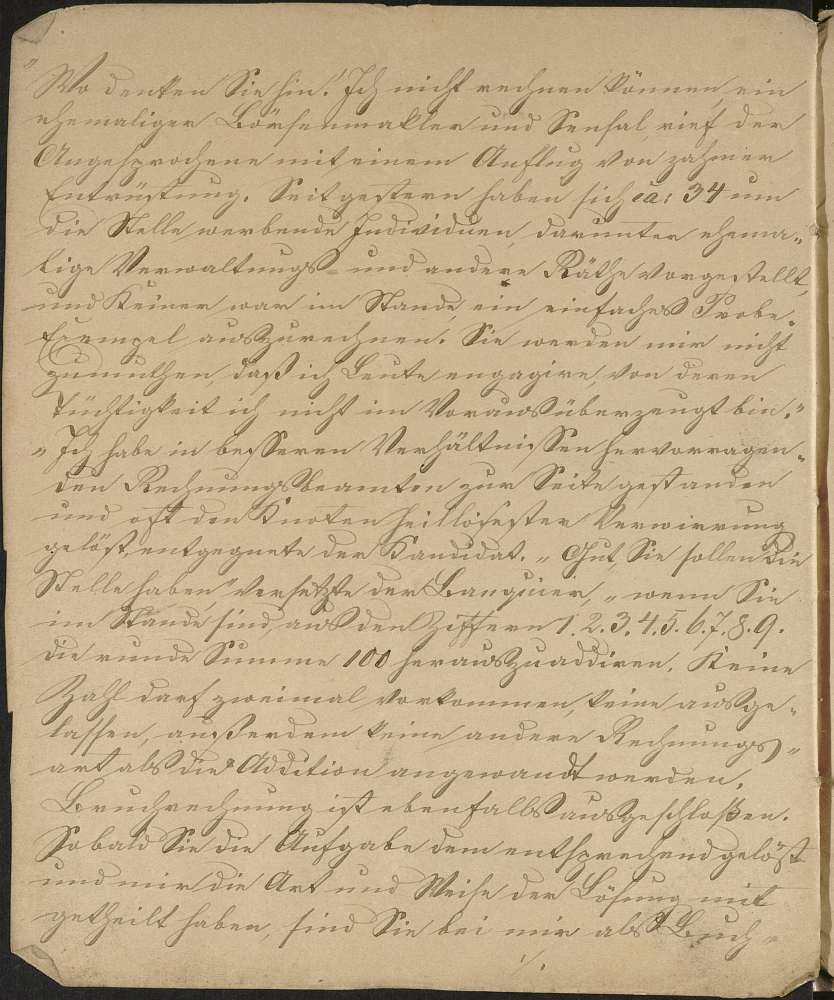 "Wo denken Sie hin! Ich nicht rechnen können, ein
ehemaliger Börsenmakler und Sensal, rief der
Angesprochene mit einem Anflug von zahmer
Entrüstung. Seit gestern haben sich ca: 34 um
die Stelle werbende Individuen, darunter ehema-
lige Verwaltungs- und andere Räthe vorgestellt,
und Keiner war im Stande, ein einfaches Probe-
Exempel auszurechnen. Sie werden mir nicht
zumuthen, daß ich Leute engagire, von deren
Tüchtigkeit ich nicht im Voraus überzeugt bin."
"Ich habe in besseren Verhältnissen hervorragen-
den Rechnungsbeamten zur Seite gestanden
und oft den Knoten heillosester Verwirrung
gelöst, entgegnete der Kandidat. "Gut, Sie sollen die
Stelle haben" versetzte der Banquier, "wenn Sie
im Stande sind, aus den Ziffern 1.2.3.4.5.6.7.8.9.
die runde Summe 100 herauszuaddiren. Keine
Zahl darf zweimal vorkommen, keine ausge-
lassen, außerdem keine andere Rechnungs-
art als die Addition angewandt werden.
Bruchrechnung ist ebenfalls ausgeschloßen.
Sobald Sie die Aufgabe dem entsprechend gelöst
und mir die Art und Weise der Lösung mit
getheilt haben, sind Sie bei mir als Buch-
./.